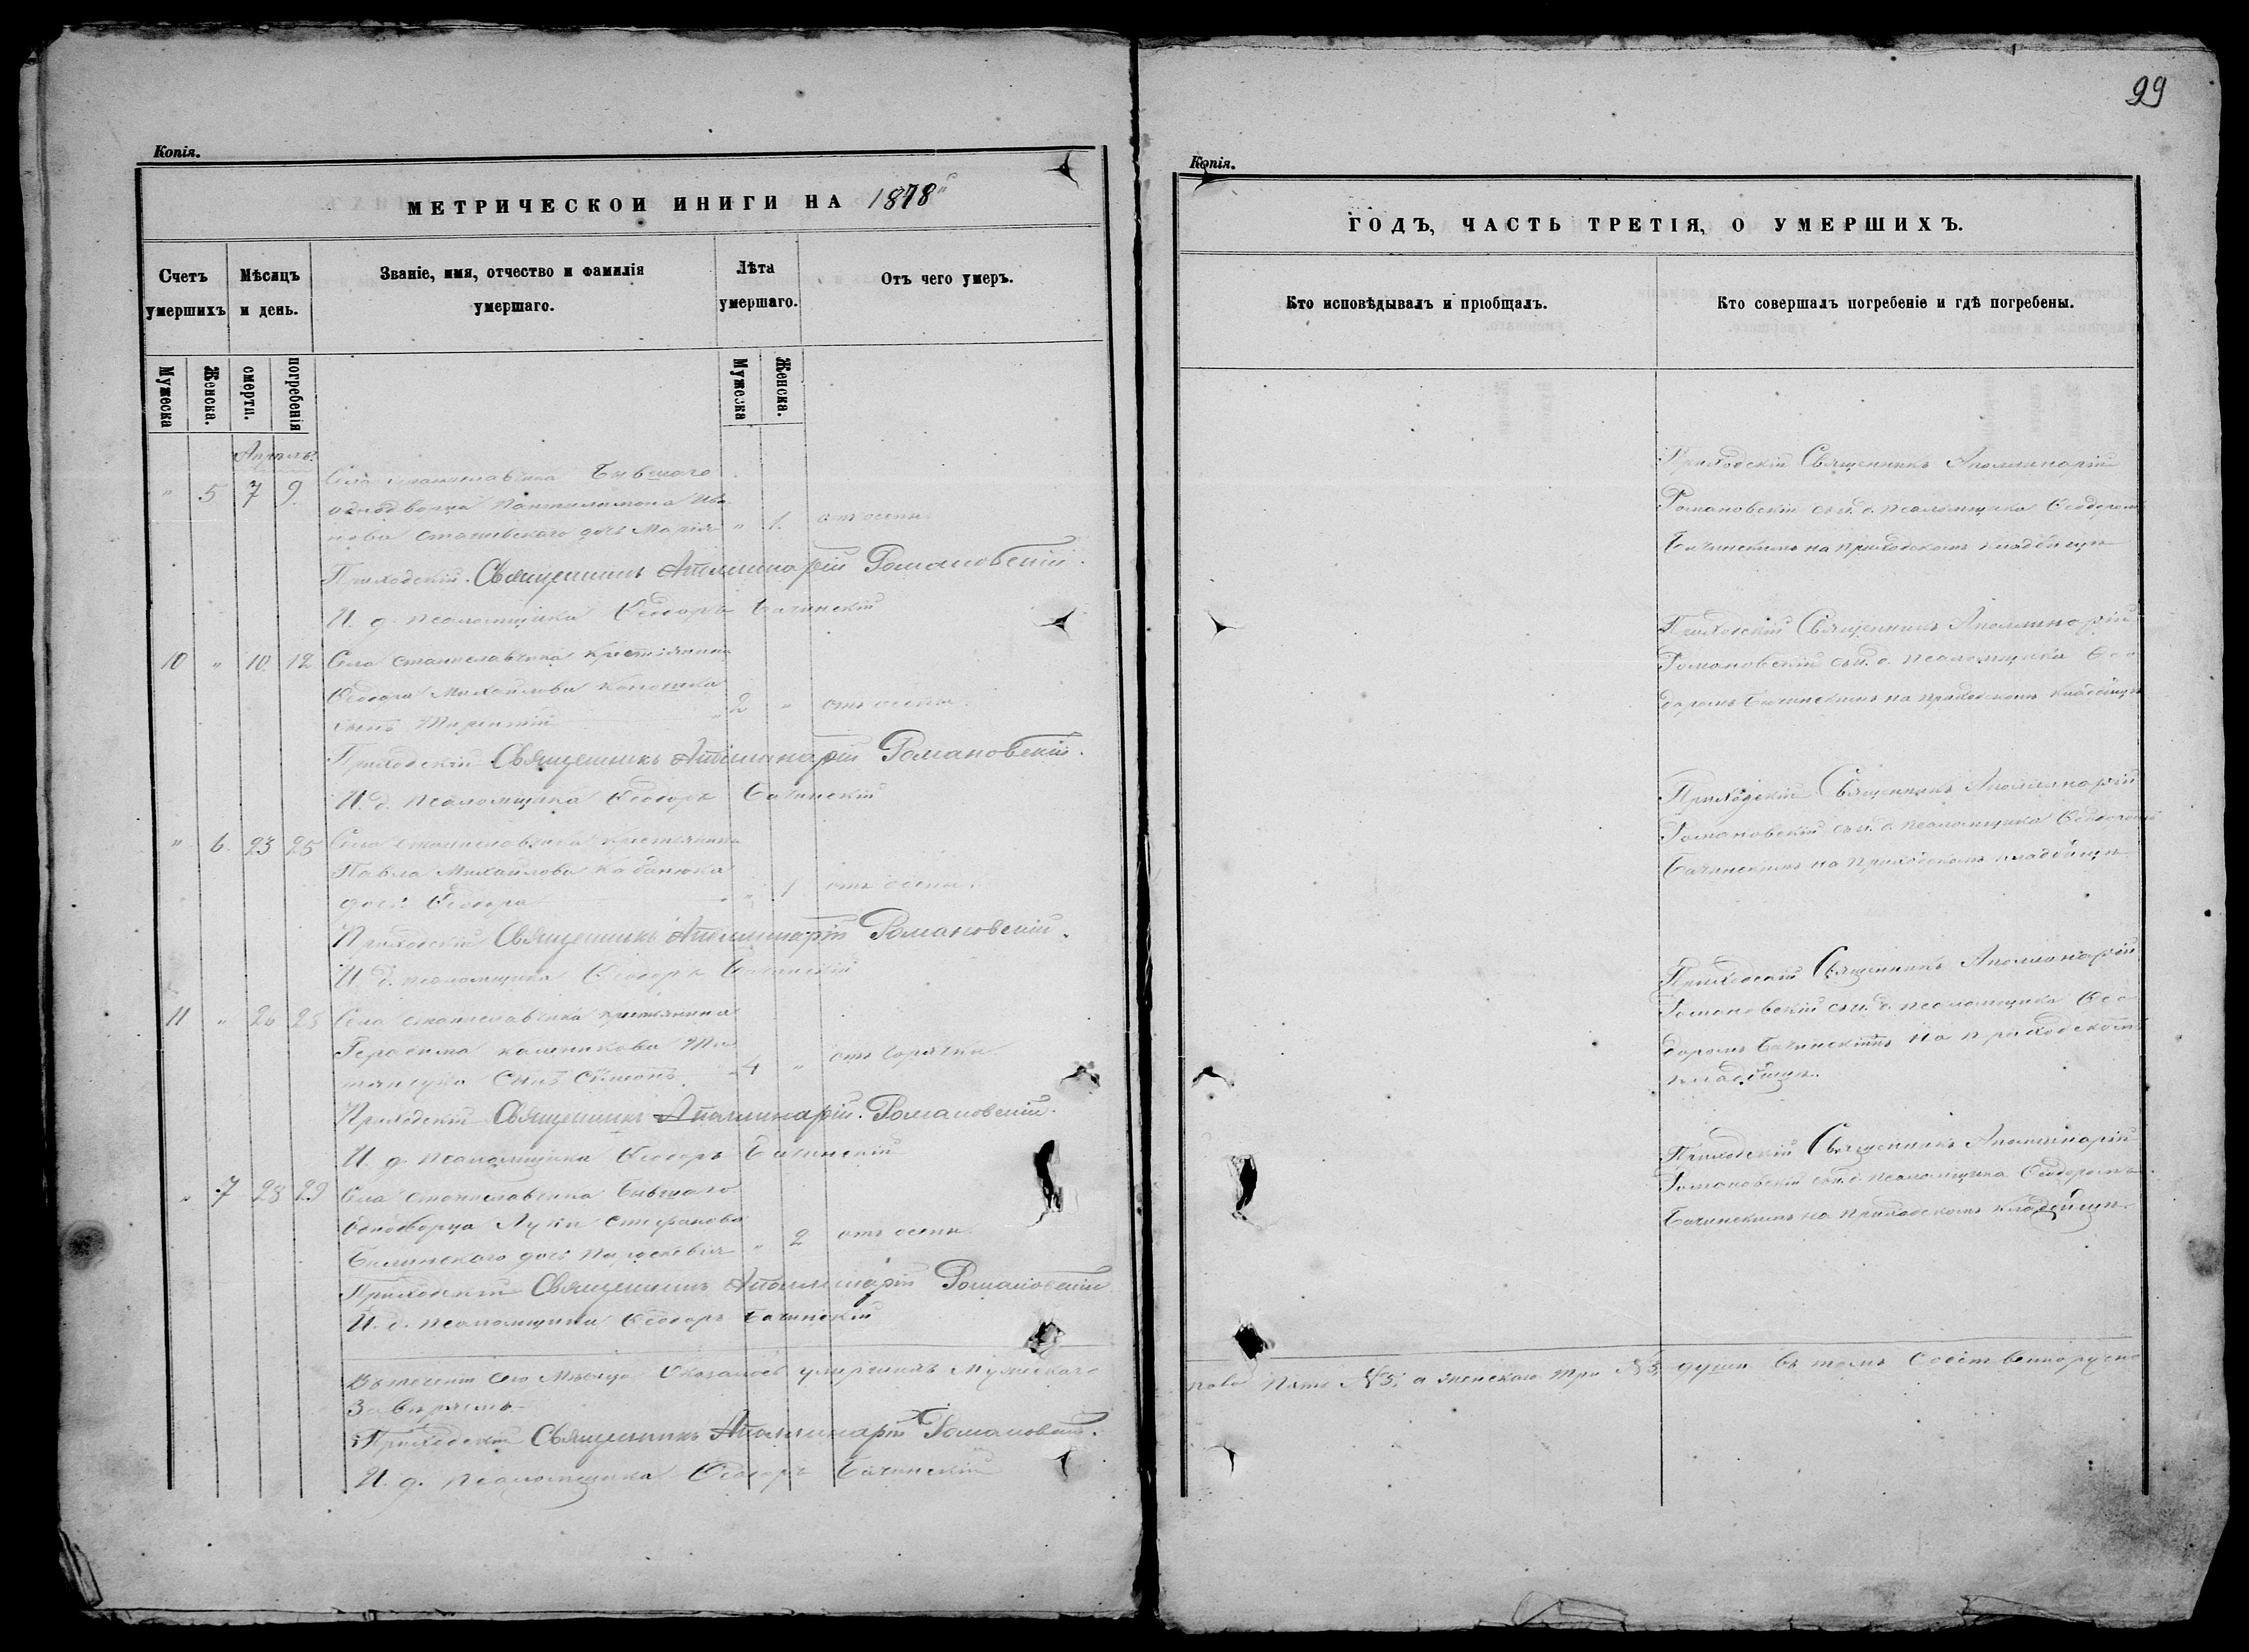 99
Копія.
МЕТРИЧЕСКОИ ИНИГИ НА 1878
Счетъ умершихъ
Мѣсяцъ и день.
Званіе, имя, отчество и фамилія умершаго.
Лѣта умершаго.
Отъ чего умеръ.
Мужеска
Женска.
смерти.
погребенія
Мужеска
Женска.
Апрель
" 5 7 9 Села Станиславчика Бывшаго
однодворца Пантилимона Ива
нова дочь Марія " 1. отъ оспы
Приходскій Священникъ Аполлинарій Романовскій.
И. д. псаломщика Ѳеодоръ Бачинскій
10 " 10 12 Села Станиславчика крестьянина
Ѳеодора Михайлова
сынъ 2 " отъ оспы.
Приходскій Священникъ Аполлинарій Романовскій.
И. д. псаломщика Ѳеодоръ Бачинскій
" 6. 23 25 Села Станиславчика крестьянина
Павла Михайлова Кабанюка
дочь Ѳеодора " 1 отъ оспы.
Приходскій Священникъ Аполлинарій Романовскій.
И. д. псаломщика Ѳеодоръ Бачинскій
11 " 26 28 Села Станиславчика крестьянина
Герасима
Сынъ Симеонъ. 4 " отъ горячки
Приходскій Священникъ Аполлинарій Романовскій.
И. д. псаломщика Ѳеодоръ Бачинскій
" 7 28 29 Села Станиславчика Бывшаго
Однодворца Луки Стефанова
Билинскаго дочь Параскевія " 2 отъ оспы
Приходскій Священникъ Аполлинарій Романовскій
И. д. псаломщика Ѳеодоръ Бачинскій
Въ теченіи сего Мѣсяца Оказалось умершихъ Мужескаго
Завѣряемъ
Приходскій Священникъ Аполлинарій Романовскій.
И. д. псаломщика Ѳеодоръ Бачинскій
Копія.
ГОДЪ, ЧАСТЬ ТРЕТІЯ, О УМЕРШИХЪ.
Кто исповѣдывалъ и пріобщалъ.
Кто совершалъ погребеніе и гдѣ погребены.
Приходскій Священникъ Аполлинарій
Романовскій съ и. д. псаломщика Ѳеодоромъ
Бачинскимъ на приходскомъ кладбищѣ
Приходскій Священникъ Аполлинарій
Романовскій съ и. д. псаломщика Ѳео
доромъ Бачинскимъ на приходскомъ кладбищѣ
Приходскій Священникъ Аполлинарій
Романовскій съ и. д. псаломщика Ѳеодоромъ
Бачинскимъ на Приходскомъ кладбищѣ
Приходскій Священникъ Аполлинарій
Романовскій съ и. д. псаломщика Ѳео
доромъ Бачинскимъ на приходскомъ
кладбищѣ.
Приходскій Священникъ Аполлинарій
Романовскій съ и. д. псаломщика Ѳеодоромъ
Бачинскимъ на Приходскомъ кладбищѣ.
пола пять №5, а женскаго три №3, души въ томъ Собственноручно